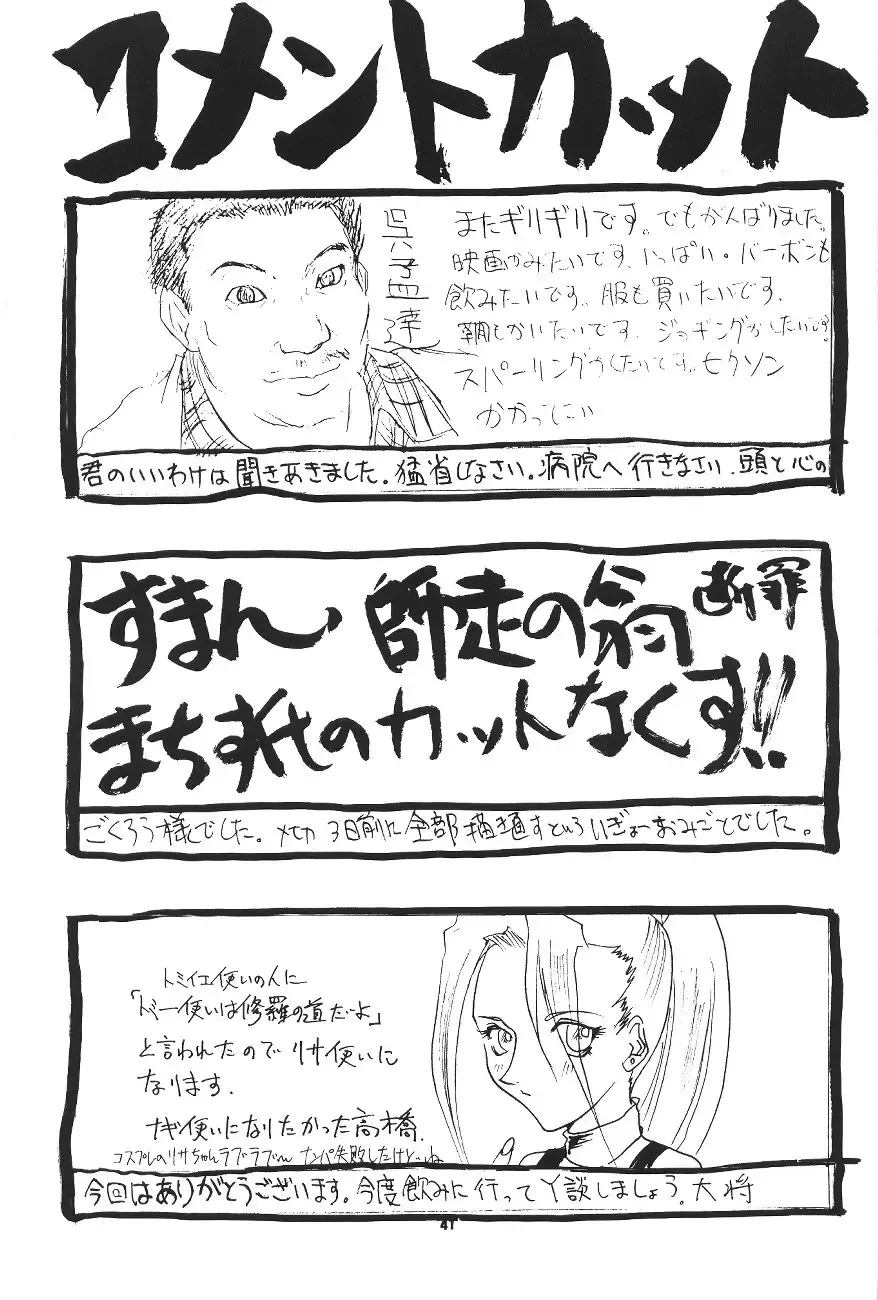 コメントカット
またギリギリです。でもがんばりました。
映画がみたいです、いっぱい。バーボンも
飲みたいです。服も買いたいです。
かいたいです。ジョギングがしたいです。
スパーリングがしたいです。ヒクソン
かかってこい
君のいいわけは聞きあきました。猛省しなさい。病院へ行きなさい、頭と心の
すまん、師走の翁 断罪
まち
のカットなくす!!
ごくろう様でした。3日前に全部描き直すといういぎょーおみごとでした。
トミイエ使いの人に
「ドベー使いは修羅の道だよ」
と言われたのでリサ使いに
なります。
ナギ使いになりたかった高橋。
コスプレのリサちゃんラブラブ〜ん ナンパ失敗したけど…ね
今回はありがとうございます。今度飲みに行ってY談しましょう。大将
41